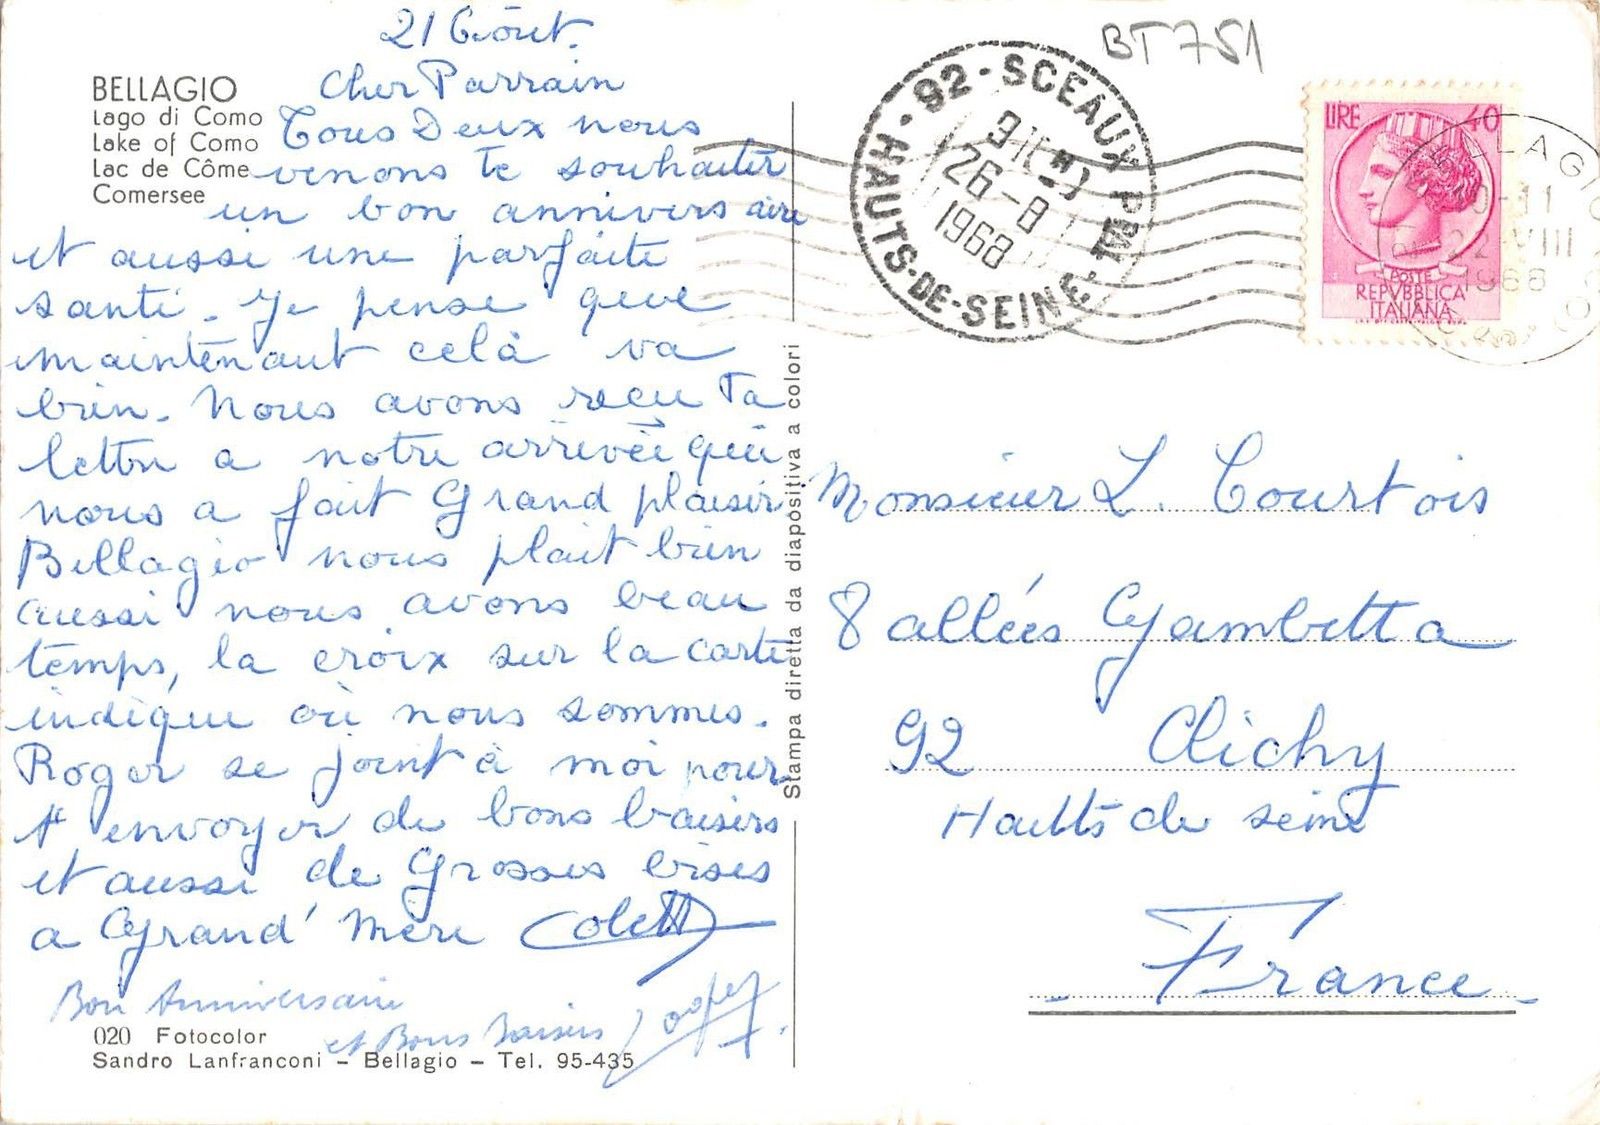 BELLAGIO
Lago di Como
Lake of Como
Lac de Côme
Comersee
21 Août.
Cher Parrain
Tous Deux nous
venons te souhaiter
un bon anniversaire
et aussi une parfaite
santé. Je pense que
maintenant celà va
bien. Nous avons reçu Ta
lettre a notre arrivée qui
nous a fait Grand plaisir
Bellagio nous plait bien
aussi nous avons beau
temps, la croix sur la carte
indique où nous sommes.
Roger se joint à moi pour
t'envoyer de bons baisers
et aussi de Grosses bises
a Grand' Mère Colette
Bon Anniversaire
et Bons Baisers
020 Fotocolor
Sandro Lanfranconi - Bellagio - Tel. 95-435
Stampa diretta da diapositiva a colori
BT751
92 - SCEAUX PPAL
HAUTS-DE-SEINE
26-8
1968
LIRE 40
POSTE
REPVBBLICA
ITALIANA
22 VIII
1968
Monsieur L. Courtois
8 allées Gambetta
92 Clichy
Hautts de seine
France